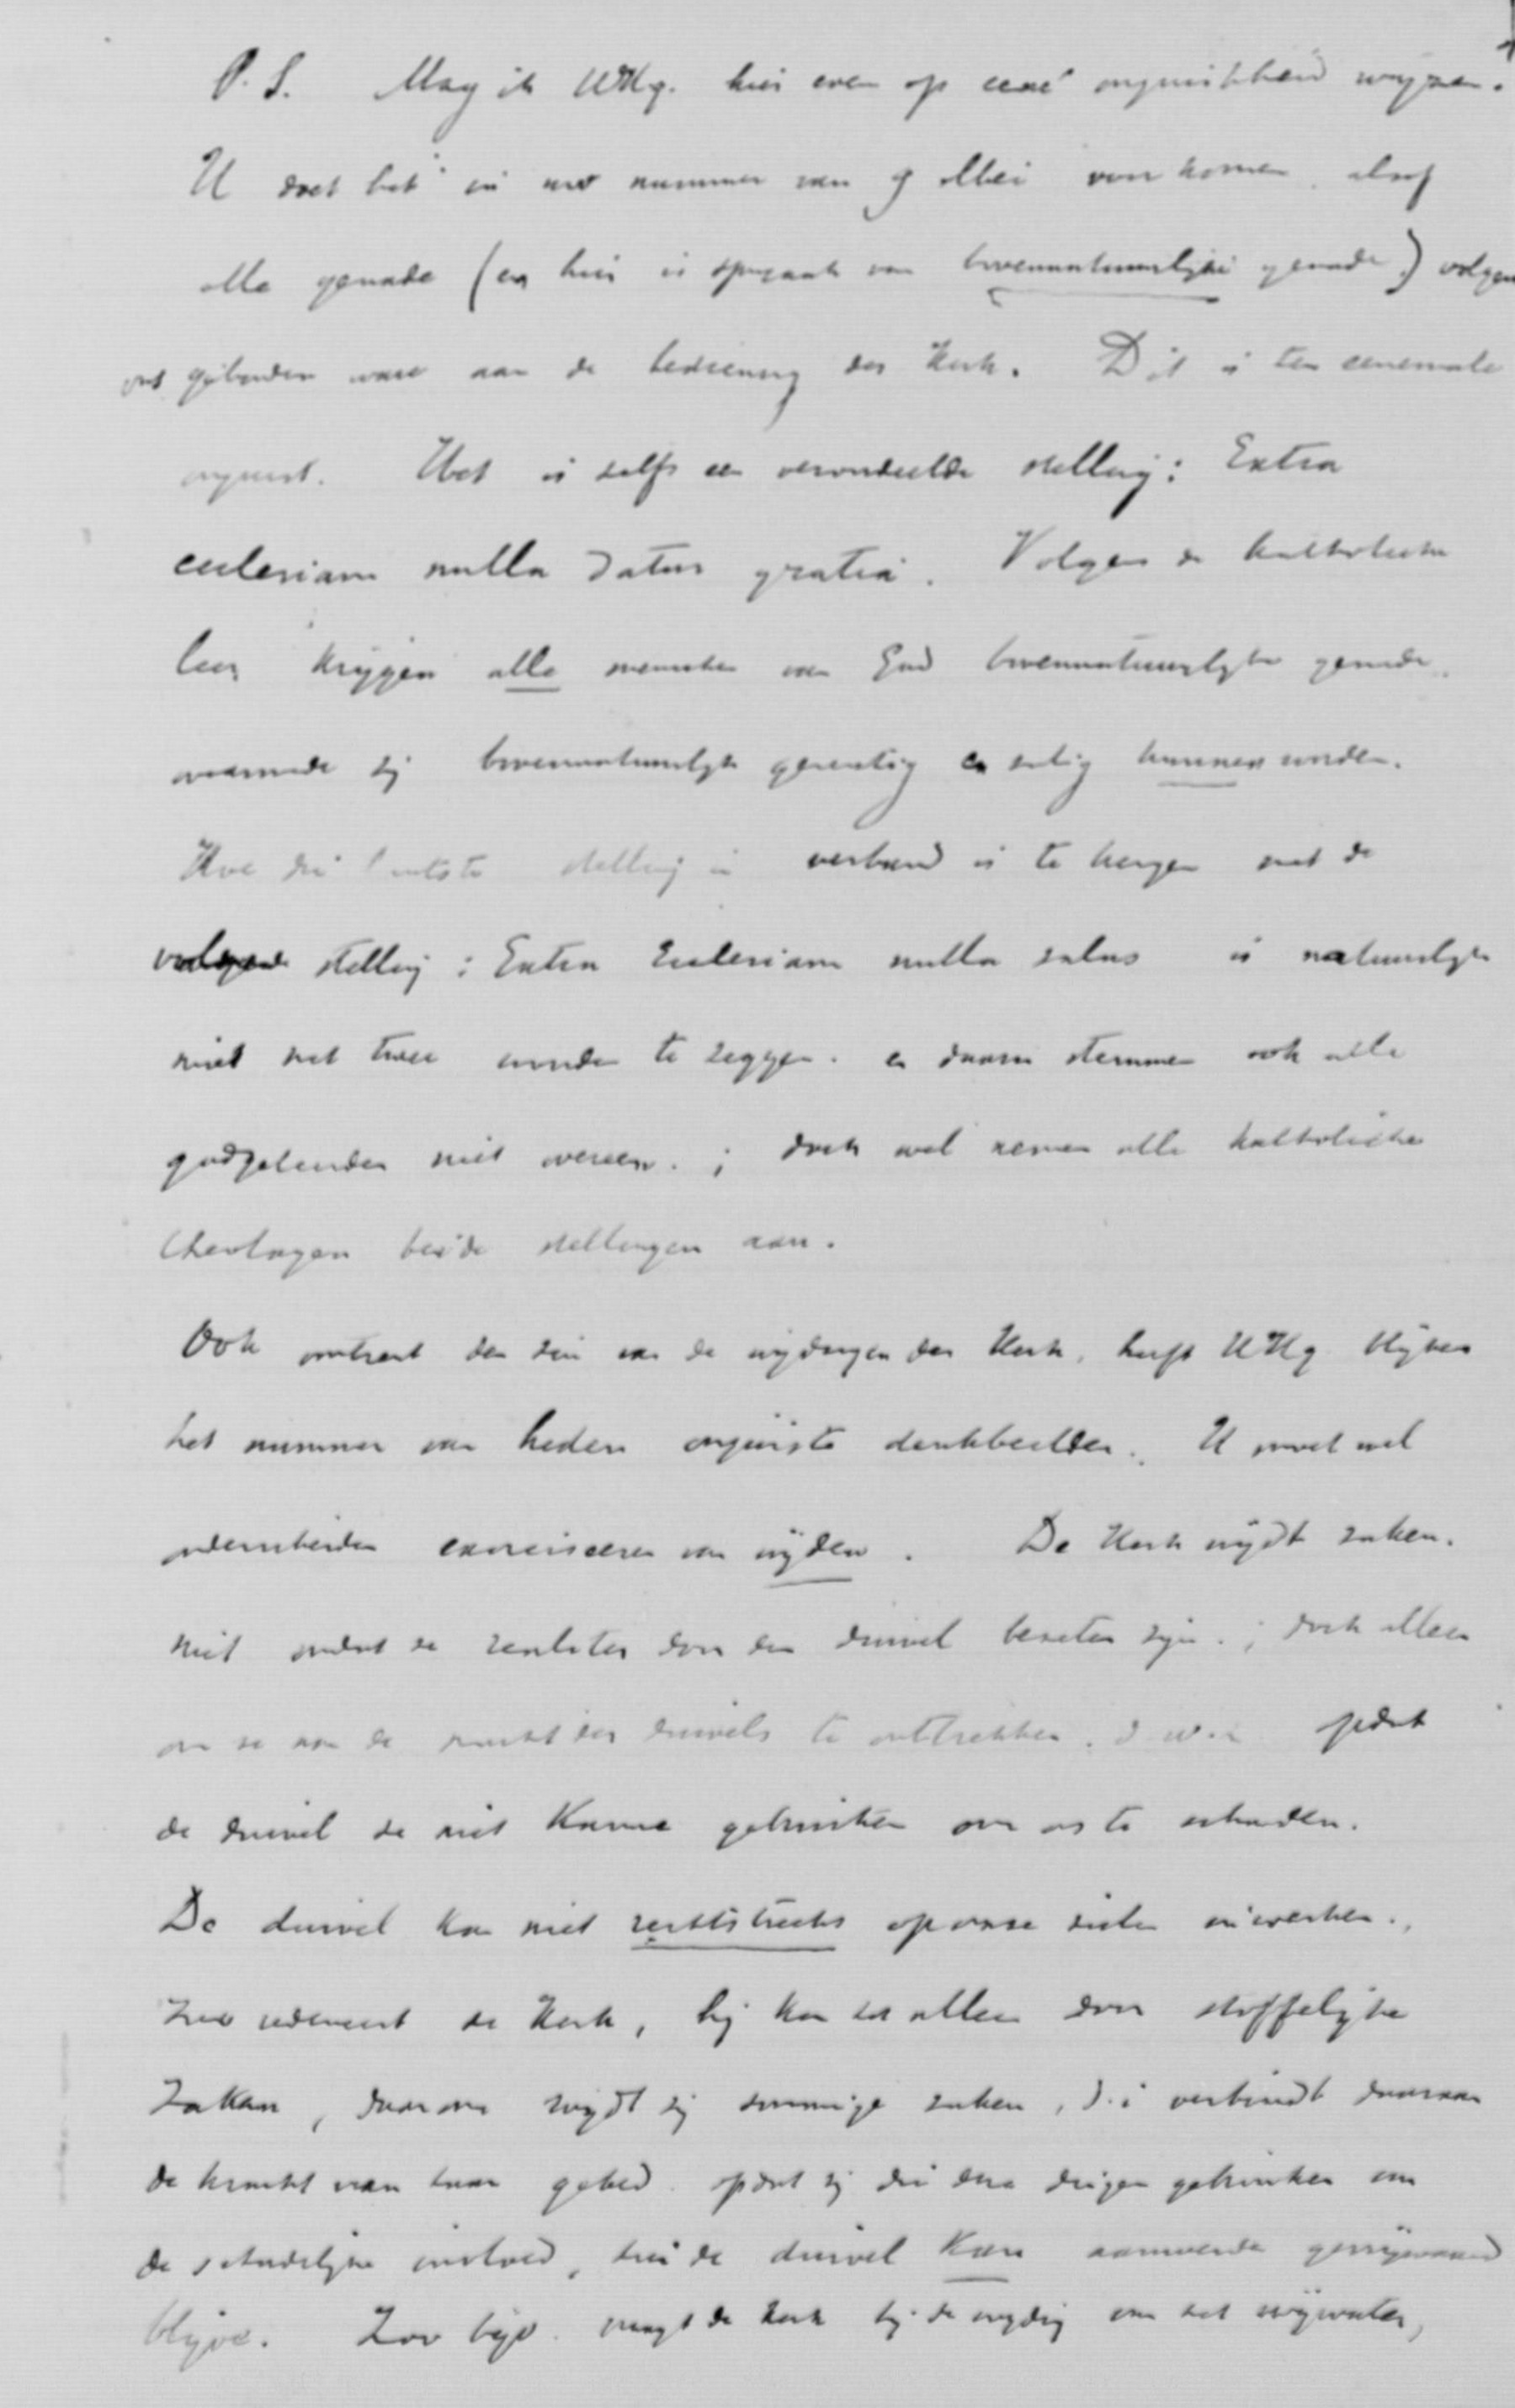 P.S. Mag ik UHg. hier even op eene onjuistheid wijzen.
U doet het in uw nummer van 9 Mei voorkomen alsof
alle genade (en hier is spraak van bovennatuurlijke genade) volgens
ons gebonden ware aan de bediening der Kerk. Dit is ten eenemale
onjuist. Het is zelfs een veroordeelde stelling: Extra
ecclesiam nulla datur gratia. Volgens de katholieke
leer krijgen alle menschen van God bovennatuurlijke genade,
waarmede zij bovennatuurlijk gerechtig en zalig kunnen worden.
Hoe die laatste stelling in verband is te brengen met de
volgende stelling: Extra Ecclesiam nulla salus is natuurlijk
niet met twee woorden te zeggen. en daarin stemmen ook alle
godgeleerden niet overeen.; doch wel nemen alle katholieke
theologen beide stellingen aan.
Ook omtrent den zin van de wijdingen der Kerk, heeft UHg blijkens
het nummer van heden onjuiste denkbeelden. U moet wel
onderscheiden exorciseeren van wijden. De Kerk wijdt zaken.
niet omdat ze realiter door den duivel bezeten zijn.; doch alleen
om ze aan de macht des duivels te onttrekken. d.w.z. opdat
de duivel ze niet kunne gebruiken om ons te schaden.
De duivel kan niet rechtstreeks op onze zielen inwerken.,
zoo redeneert de Kerk, hij kan het alleen door stoffelijke
zaken, daarom wijdt zij sommige zaken, d.i. verbindt daaraan
de kracht van haar gebed. opdat zij die deze dingen gebruiken van
de schadelijke invloed, die de duivel kan aanwenden gevrijwaard
blijve. Zoo bijv. vraagt de Kerk bij de wijding van het wijwater,